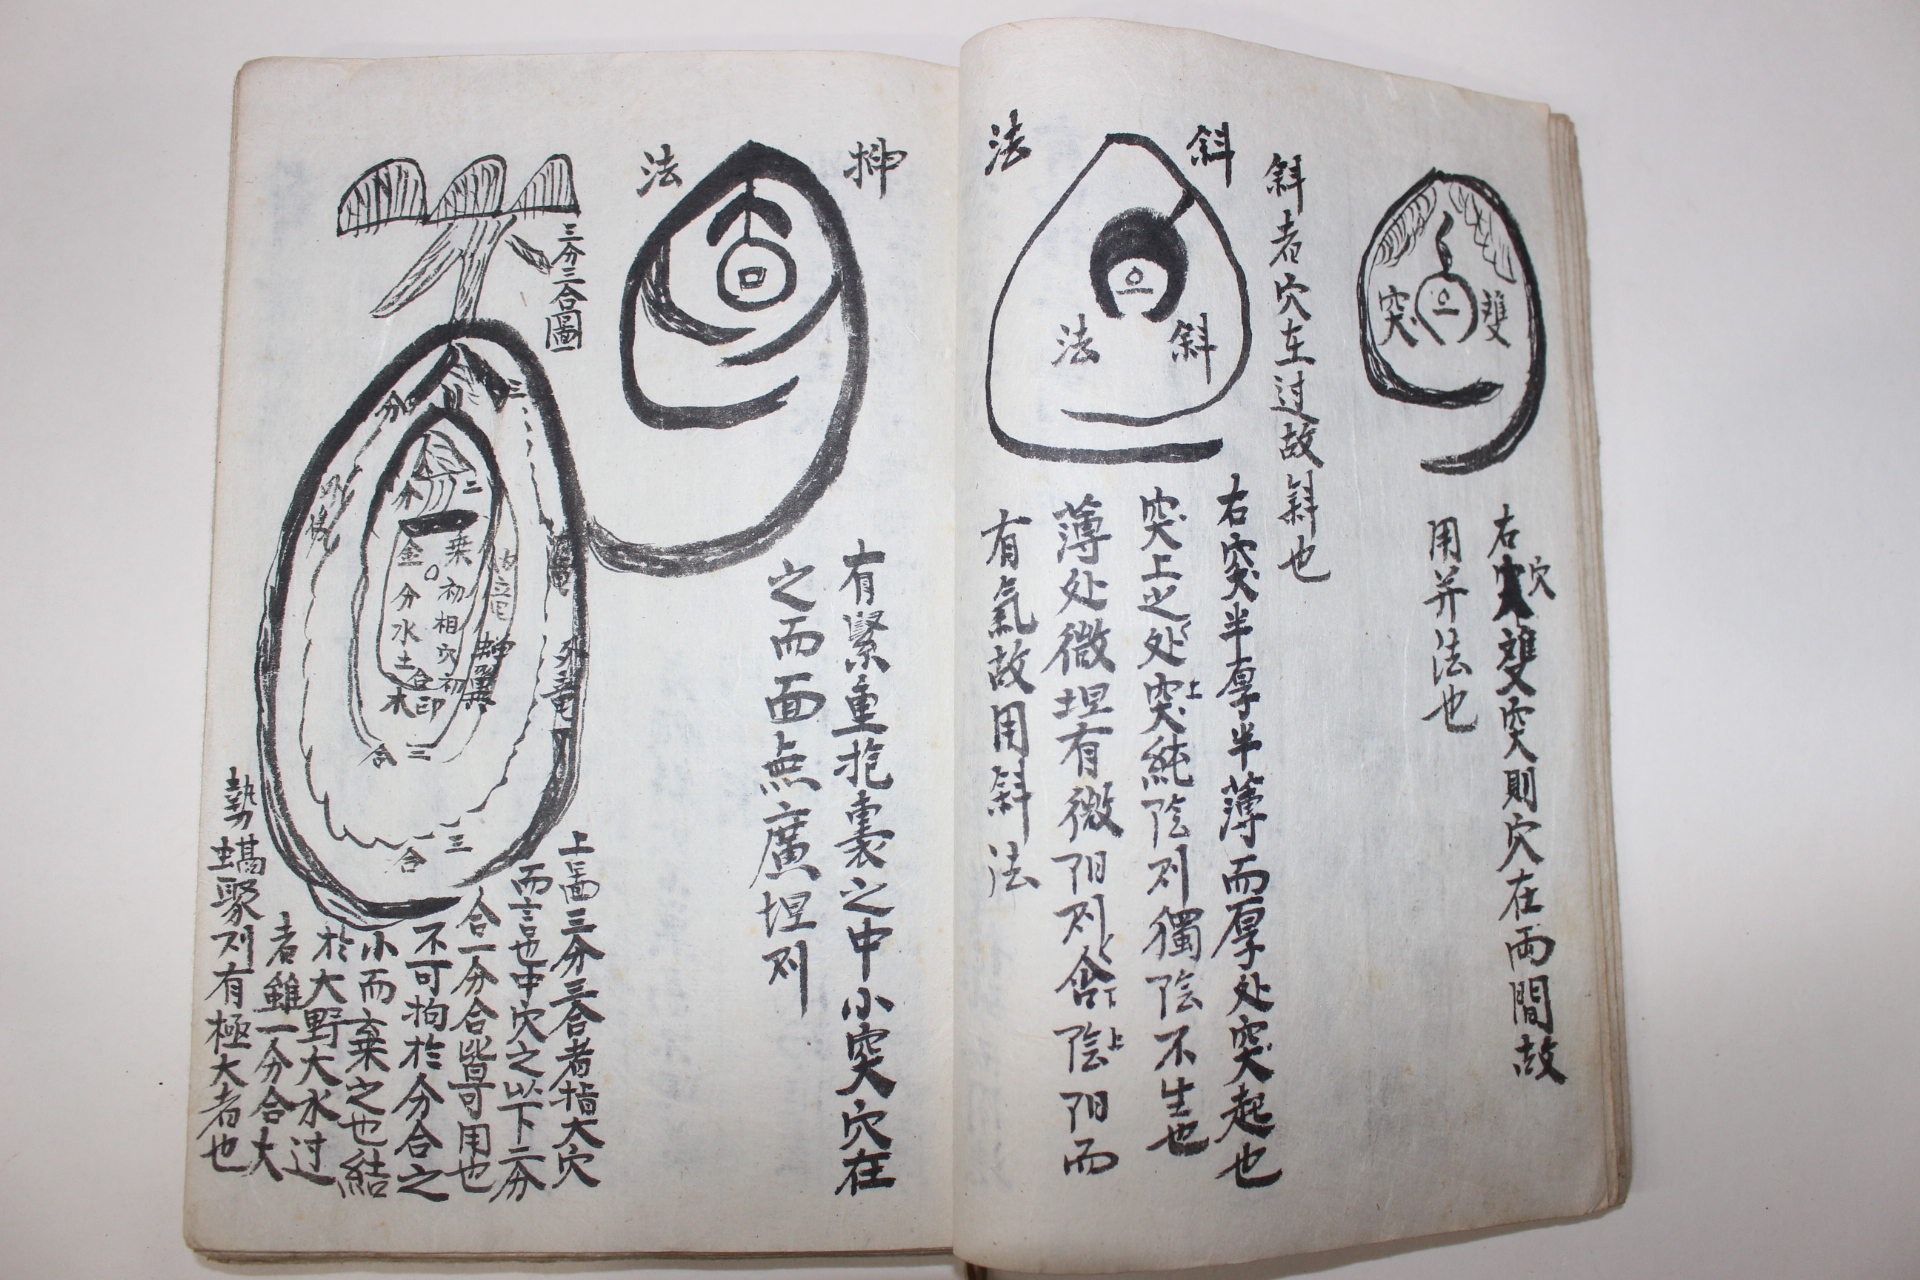 雙
突
右穴雙突則穴在兩間故
用并法也
斜者穴在过故斜也
斜
法
斜
法
右突半厚半薄而厚处突起也
突上之处突純陰则獨陰不生也
薄处微坦有微阳则含陰阳而
有氣故用斜法
抻
法
有緊重抱裹之中小突穴在
之而面点廣坦则
三分三合圖
三
分
二
分
乗
金
初
分
相
水
穴
土
初
合
印
木
蟬翼
死竜
三
合
三
合
上啚三分三合者指大穴
而言也中穴之以下二分
合一分合皆可用也
不可拘於分合之
小而棄之也結
於大野大水过
者雖一分合大
勢蟎聚则有極大者也